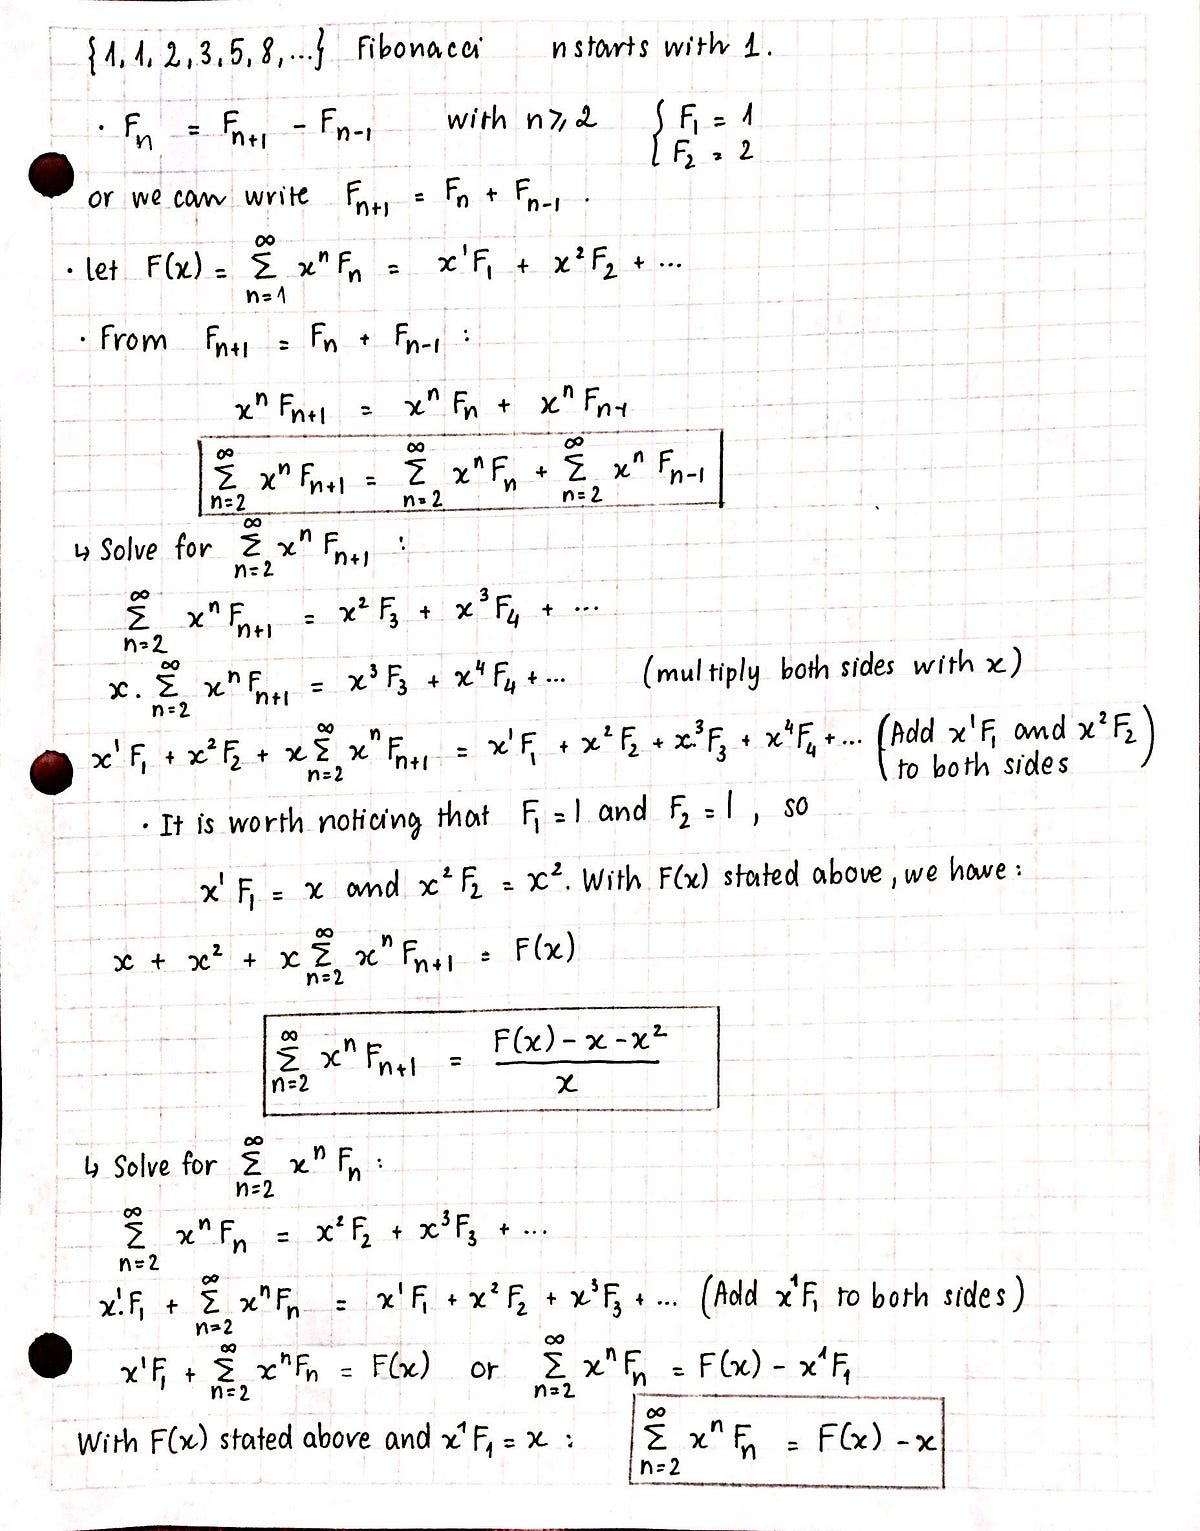 {1, 1, 2, 3, 5, 8, ...} Fibonacci n starts with 1.
· Fₙ = Fₙ₊₁ - Fₙ₋₁ with n ⩾ 2 { F₁ = 1
F₂ = 2
or we can write Fₙ₊₁ = Fₙ + Fₙ₋₁ .
· let F(x) = ∑_{n=1}^{∞} xⁿ Fₙ = x¹F₁ + x²F₂ + ...
· From Fₙ₊₁ = Fₙ + Fₙ₋₁ :
xⁿ Fₙ₊₁ = xⁿ Fₙ + xⁿ Fₙ₋₁
∑_{n=2}^{∞} xⁿ Fₙ₊₁ = ∑_{n=2}^{∞} xⁿ Fₙ + ∑_{n=2}^{∞} xⁿ Fₙ₋₁
↳ Solve for ∑_{n=2}^{∞} xⁿ Fₙ₊₁ :
∑_{n=2}^{∞} xⁿ Fₙ₊₁ = x² F₃ + x³ F₄ + ...
x . ∑_{n=2}^{∞} xⁿ Fₙ₊₁ = x³ F₃ + x⁴ F₄ + ... (multiply both sides with x)
x¹ F₁ + x² F₂ + x ∑_{n=2}^{∞} xⁿ Fₙ₊₁ = x¹ F₁ + x² F₂ + x.³ F₃ + x⁴ F₄ + ... (Add x¹F₁ and x²F₂
to both sides)
· It is worth noticing that F₁ = 1 and F₂ = 1 , so
x¹ F₁ = x and x² F₂ = x². With F(x) stated above, we have :
x + x² + x ∑_{n=2}^{∞} xⁿ Fₙ₊₁ = F(x)
∑_{n=2}^{∞} xⁿ Fₙ₊₁ = (F(x) - x - x²)/x
↳ Solve for ∑_{n=2}^{∞} xⁿ Fₙ :
∑_{n=2}^{∞} xⁿ Fₙ = x² F₂ + x³ F₃ + ...
x¹. F₁ + ∑_{n=2}^{∞} xⁿ Fₙ = x¹ F₁ + x² F₂ + x³ F₃ + ... (Add x¹F₁ to both sides)
x¹ F₁ + ∑_{n=2}^{∞} xⁿ Fₙ = F(x) or ∑_{n=2}^{∞} xⁿ Fₙ = F(x) - x¹F₁
With F(x) stated above and x¹ F₁ = x : ∑_{n=2}^{∞} xⁿ Fₙ = F(x) - x